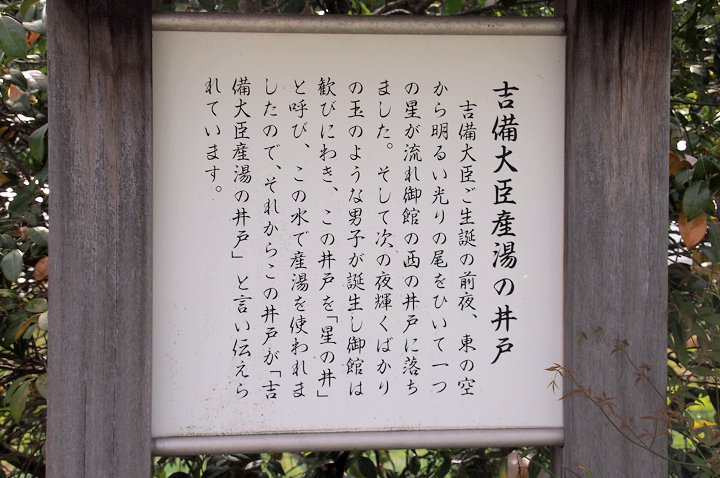 吉備大臣産湯の井戸
吉備大臣ご生誕の前夜、東の空
から明るい光りの尾をひいて一つ
の星が流れ御館の西の井戸に落ち
ました。そして次の夜輝くばかり
の玉のような男子が誕生し御館は
歓びにわき、この井戸を「星の井」
と呼び、この水で産湯を使われま
したので、それからこの井戸が「吉
備大臣産湯の井戸」と言い伝えら
れています。